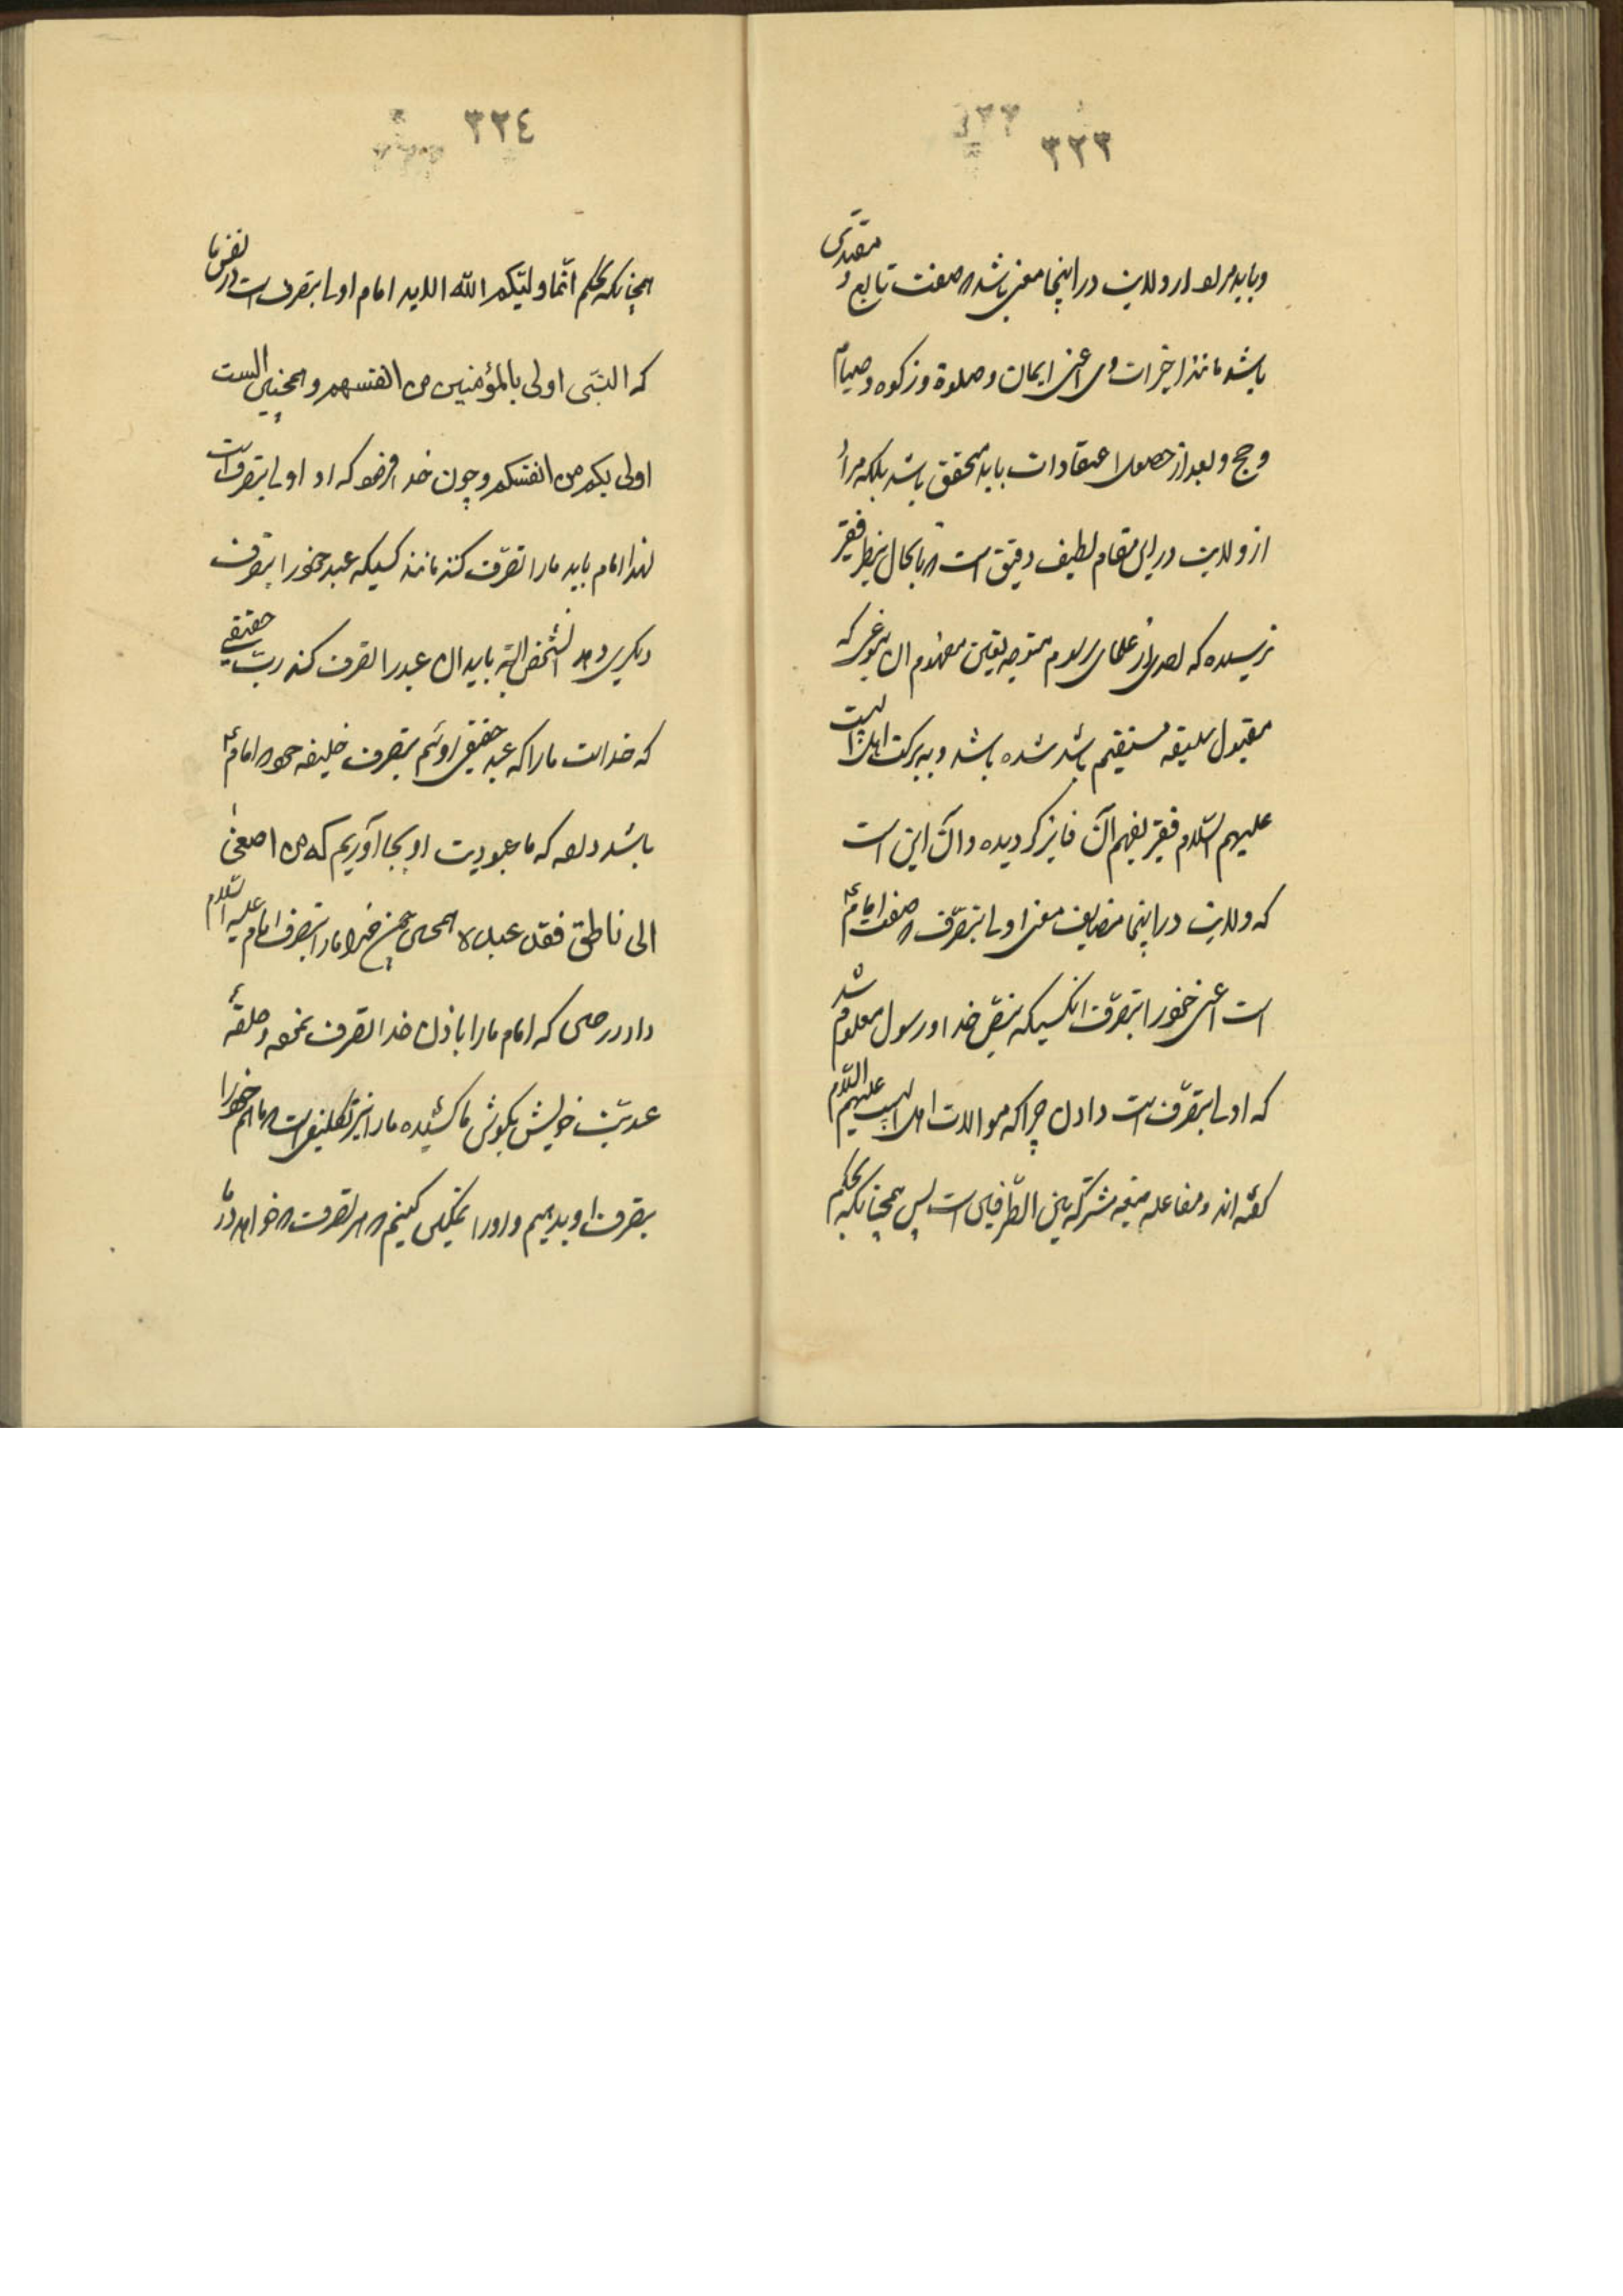 ٣٢٣
و باید مراد از ولایت در اینجا معنی باشد که صفت تابع و مقتدی
باشد مانند اجزای وی اعنی ایمان و صلوة و زکوة و صیام
و حج و بعد از حصول اعتقادات باید متحقق باشد بلکه مراد
از ولایت در این مقام لطیف دقیق است که تا بحال بنظر فقیر
نرسیده که احدی از علمای رسوم متوجه تعیین مفهوم آن بنوعی که
مقبول سلیقه مستقیم باشد شده باشد و به برکت اهل بیت
علیهم السّلام فقیر بفهم آن فایز گردیده و آن این است
که ولایت در اینجا مضایف معنی اولی بتصرّف که صفت امام ع
است اعنی خود را بتصرّف آنکسیکه بنصّ خدا و رسول معلوم شد
که اولی بتصرّف است دادن چرا که موالات اهل البیت علیهم السّلام
گفته اند و مفاعله صیغه مشترکه بین الطّرفین است پس همچنانکه بحکم
٣٢٤
همچنانکه بحکم انّما ولیّکم الله الایه امام اولی بتصرف است در نفس ما
که النبّی اولی بالمؤمنین من انفسهم و همچنین الست
اولی بکم من انفسکم و چون خدا فرمود که او اولی بتصرف است
لهذا امام باید ما را تصرّف کند مانند کسیکه عبد خود را بتصرف
دیگری دهد آنشخص البته باید آن عبد را تصرف کند ربّ حقیقی
که خداست ما را که عبد حقیقی اوئیم بتصرف خلیفه خود که امام ع
باشد داده که ما عبودیت او بجا آوریم که من اصغی
الی ناطق فقد عبده همچنین خدا ما را بتصرف امام علیه السّلام
داد در حینی که امام ما را باذن خدا تصرف نموده و حلقهٔ
عبدیّت خویش بگوش ما کشیده ما را نیز تکلیف است که ما هم خود را
بتصرف او بدهیم و او را تمکین کنیم که هر تصرف که خواهد در ما